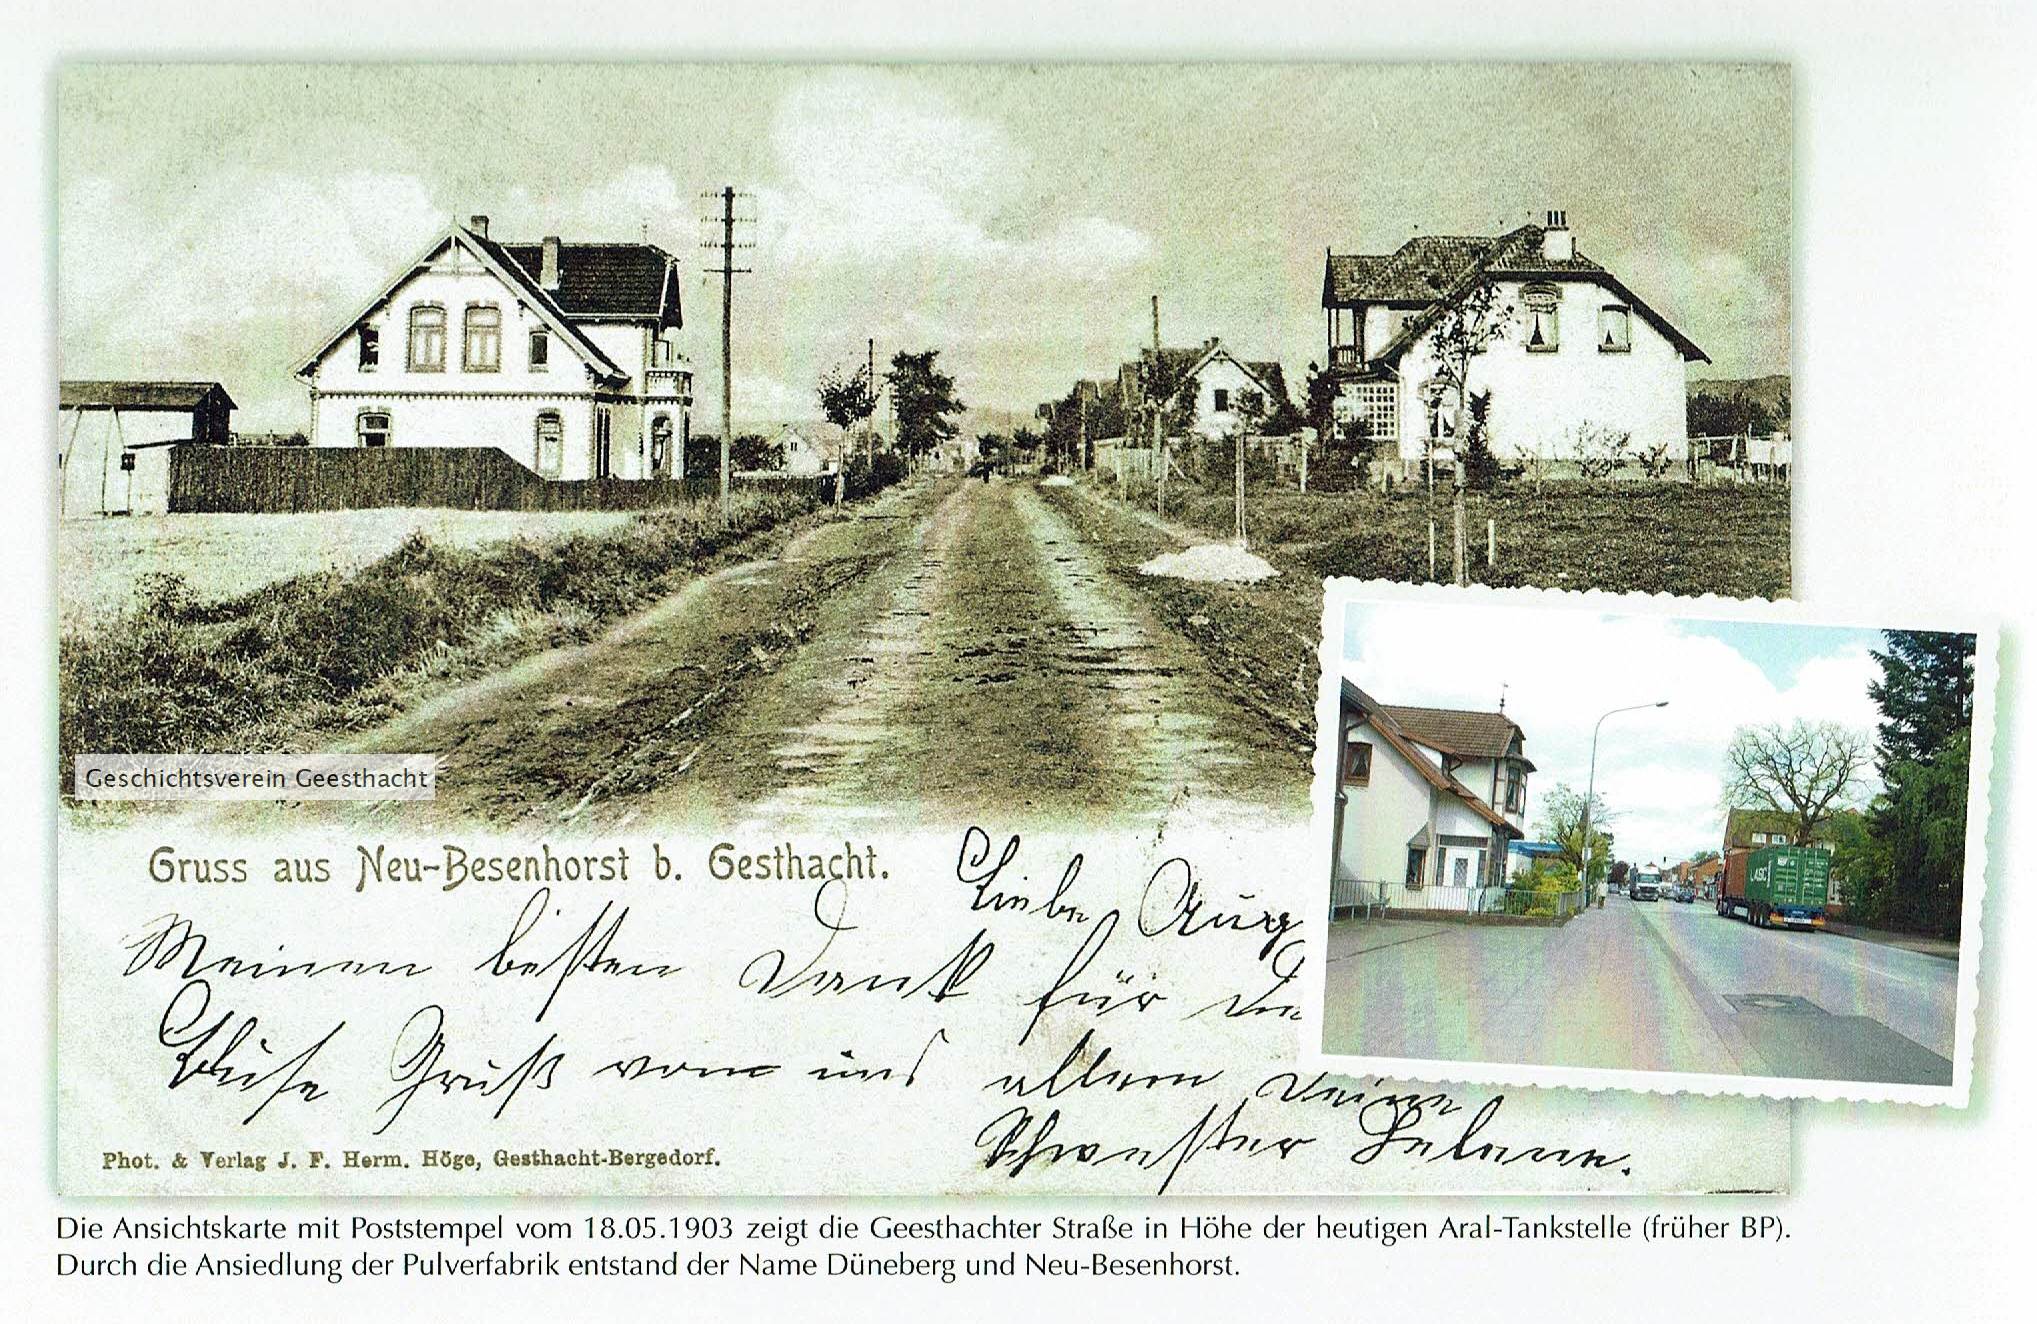 Geschichtsverein Geesthacht
Gruss aus Neu-Besenhorst b. Gesthacht.
Liebe Aug
Meinen besten Dank für
Gruß von uns allem Deine
Schwester Helene.
Phot. & Verlag J. F. Herm. Höge, Gesthacht-Bergedorf.
LASC
Die Ansichtskarte mit Poststempel vom 18.05.1903 zeigt die Geesthachter Straße in Höhe der heutigen Aral-Tankstelle (früher BP).
Durch die Ansiedlung der Pulverfabrik entstand der Name Düneberg und Neu-Besenhorst.